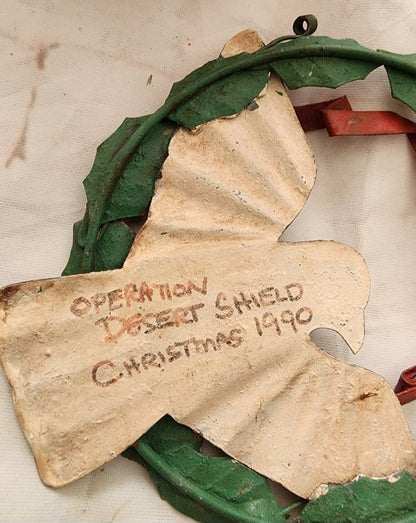 OPERATION
DESERT SHIELD
CHRISTMAS 1990